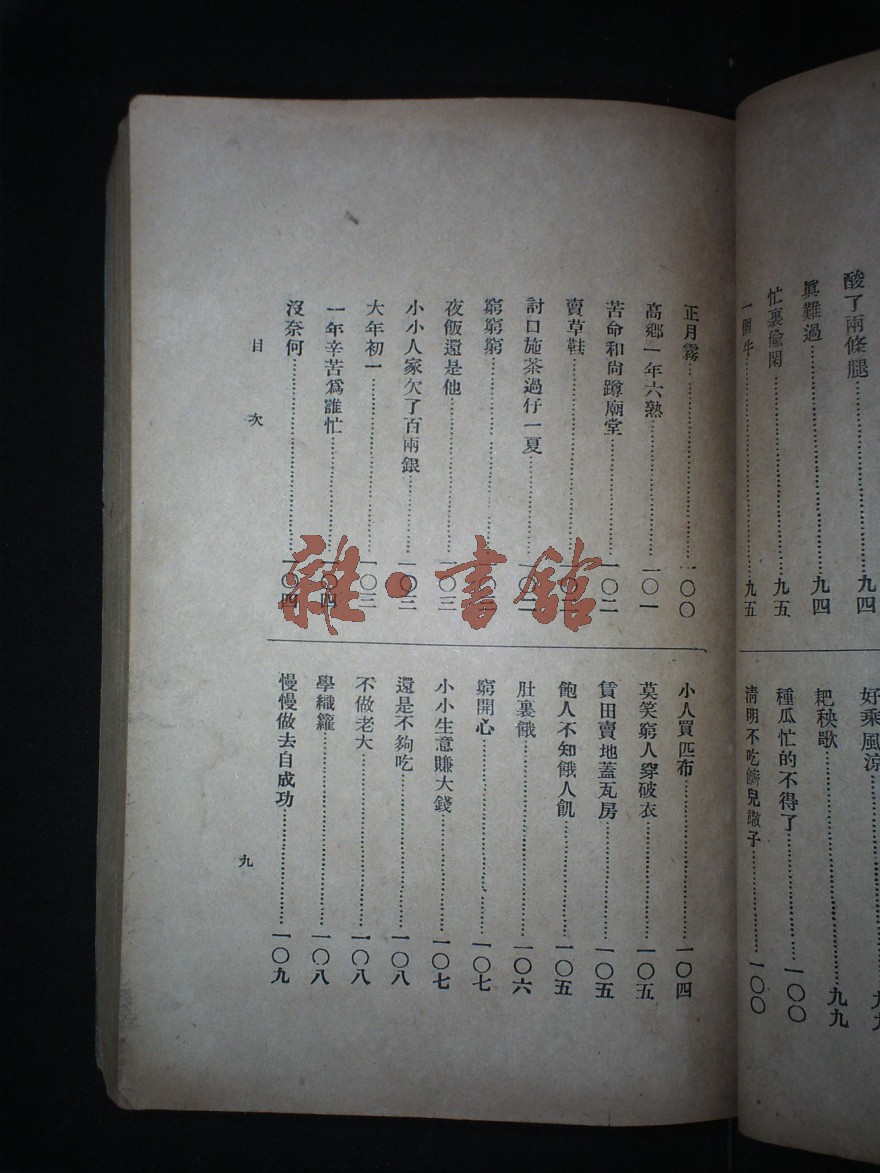 酸了兩條腿……九四
眞難過……九四
忙裏偸閑……九五
一個牛……九五
好乘風涼……九九
耙秧歌……九九
種瓜忙的不得了……一〇〇
淸明不吃 兒 子……一〇〇
正月霧……一〇〇
高鄕一年六熟……一〇一
苦命和尙蹲廟堂……一〇二
賣草鞋……一〇二
討口施茶過仔一夏……一〇二
窮窮窮……一〇三
夜飯還是他……一〇三
小小人家欠了百兩銀……一〇三
大年初一……一〇三
一年辛苦爲誰忙……一〇四
沒奈何……一〇四
小人買匹布……一〇四
莫笑窮人穿破衣……一〇五
賃田賣地蓋瓦房……一〇五
飽人不知餓人飢……一〇五
肚裏餓……一〇六
窮開心……一〇七
小小生意賺大錢……一〇七
還是不夠吃……一〇八
不做老大……一〇八
學織籮……一〇八
慢慢做去自成功……一〇九
目次
九
雜·書館